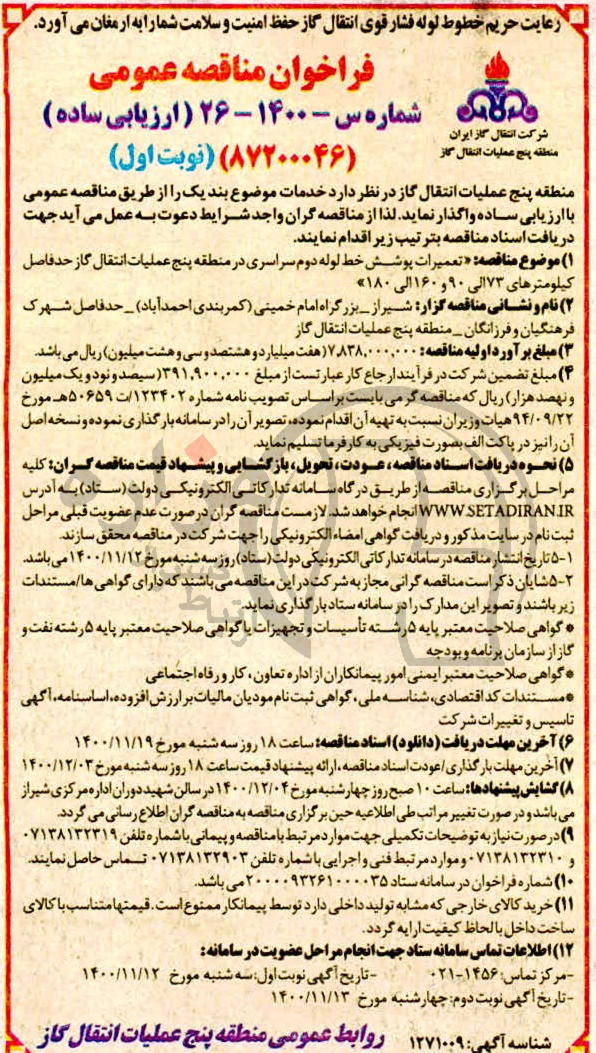 رعایت حریم خطوط لوله فشار قوی انتقال گاز حفظ امنیت و سلامت شما را به ارمغان می آورد.
فراخوان مناقصه عمومی
شماره س – ۱۴۰۰ – ۲۶ (ارزیابی ساده)
(۸۷۲۰۰۰۴۶) (نوبت اول)
شرکت انتقال گاز ایران
منطقه پنج عملیات انتقال گاز
منطقه پنج عملیات انتقال گاز در نظر دارد خدمات موضوع بند یک را از طریق مناقصه عمومی
با ارزیابی ساده واگذار نماید. لذا از مناقصه گران واجد شرایط دعوت به عمل می آید جهت
دریافت اسناد مناقصه بترتیب زیر اقدام نمایند.
۱) موضوع مناقصه: «تعمیرات پوشش خط لوله دوم سراسری در منطقه پنج عملیات انتقال گاز حدفاصل
کیلومترهای ۷۳ الی ۹۰ و ۱۶۰ الی ۱۸۰»
۲) نام و نشانی مناقصه گزار: شیراز _ بزرگراه امام خمینی (کمربندی احمدآباد) _ حدفاصل شهرک
فرهنگیان و فرزانگان _ منطقه پنج عملیات انتقال گاز
۳) مبلغ برآورد اولیه مناقصه: ۷,۸۳۸,۰۰۰,۰۰۰ (هفت میلیارد و هشتصد و سی و هشت میلیون) ریال می باشد.
۴) مبلغ تضمین شرکت در فرآیند ارجاع کار عبارتست از مبلغ ۳۹۱,۹۰۰,۰۰۰ (سیصد و نود و یک میلیون
و نهصد هزار) ریال که مناقصه گر می بایست بر اساس تصویب نامه شماره ۱۲۳۴۰۲/ت ۵۰۶۵۹هـ مورخ
۹۴/۰۹/۲۲ هیات وزیران نسبت به تهیه آن اقدام نموده، تصویر آن را در سامانه بارگذاری نموده و نسخه اصل
آن را نیز در پاکت الف بصورت فیزیکی به کارفرما تسلیم نماید.
۵) نحوه دریافت اسناد مناقصه، عودت، تحویل، بازگشایی و پیشنهاد قیمت مناقصه گران: کلیه
مراحل برگزاری مناقصه از طریق درگاه سامانه تدارکاتی الکترونیکی دولت (ستاد) به آدرس
WWW.SETADIRAN.IR انجام خواهد شد. لازمست مناقصه گران در صورت عدم عضویت قبلی مراحل
ثبت نام در سایت مذکور و دریافت گواهی امضاء الکترونیکی را جهت شرکت در مناقصه محقق سازند.
۵-۱ تاریخ انتشار مناقصه در سامانه تدارکاتی الکترونیکی دولت (ستاد) روز سه شنبه مورخ ۱۴۰۰/۱۱/۱۲ می باشد.
۵-۲ شایان ذکر است مناقصه گرانی مجاز به شرکت در این مناقصه می باشند که دارای گواهی ها/مستندات
زیر باشند و تصویر این مدارک را در سامانه ستاد بارگذاری نماید.
* گواهی صلاحیت معتبر پایه ۵ رشته تأسیسات و تجهیزات یا گواهی صلاحیت معتبر پایه ۵ رشته نفت و
گاز از سازمان برنامه و بودجه
* گواهی صلاحیت معتبر ایمنی امور پیمانکاران از اداره تعاون، کار و رفاه اجتماعی
* مستندات کد اقتصادی، شناسه ملی، گواهی ثبت نام مودیان مالیات بر ارزش افزوده، اساسنامه، آگهی
تاسیس و تغییرات شرکت
۶) آخرین مهلت دریافت (دانلود) اسناد مناقصه: ساعت ۱۸ روز سه شنبه مورخ ۱۴۰۰/۱۱/۱۹
۷) آخرین مهلت بارگذاری/عودت اسناد مناقصه، ارائه پیشنهاد قیمت ساعت ۱۸ روز سه شنبه مورخ ۱۴۰۰/۱۲/۰۳
۸) گشایش پیشنهادها: ساعت ۱۰ صبح روز چهارشنبه مورخ ۱۴۰۰/۱۲/۰۴ در سالن شهید دوران اداره مرکزی شیراز
می باشد و در صورت تغییر مراتب طی اطلاعیه حین برگزاری مناقصه به مناقصه گران اطلاع رسانی می گردد.
۹) در صورت نیاز به توضیحات تکمیلی جهت موارد مرتبط با مناقصه و پیمانی با شماره تلفن ۰۷۱۳۸۱۳۲۳۱۹
و ۰۷۱۳۸۱۳۲۳۱۰ و موارد مرتبط فنی و اجرایی با شماره تلفن ۰۷۱۳۸۱۳۲۹۰۳ تماس حاصل نمایند.
۱۰) شماره فراخوان در سامانه ستاد ۲۰۰۰۰۹۳۲۶۱۰۰۰۰۳۵ می باشد.
۱۱) خرید کالای خارجی که مشابه تولید داخلی دارد توسط پیمانکار ممنوع است. قیمتها متناسب با کالای
ساخت داخل با لحاظ کیفیت ارایه گردد.
۱۲) اطلاعات تماس سامانه ستاد جهت انجام مراحل عضویت در سامانه:
-مرکز تماس: ۱۴۵۶-۰۲۱ -تاریخ آگهی نوبت اول: سه شنبه مورخ ۱۴۰۰/۱۱/۱۲
-تاریخ آگهی نوبت دوم: چهارشنبه مورخ ۱۴۰۰/۱۱/۱۳
شناسه آگهی: ۱۲۷۱۰۰۹ روابط عمومی منطقه پنج عملیات انتقال گاز